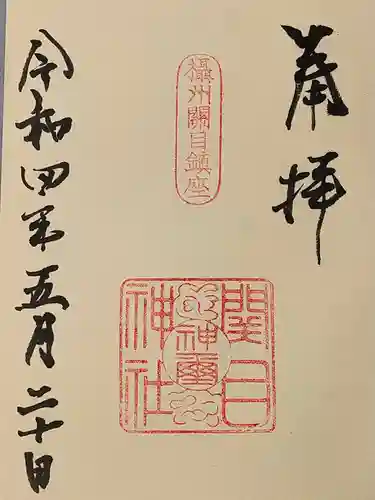 奉拝
攝州關目鎮座
関目神社
神璽
令和四年五月二十日